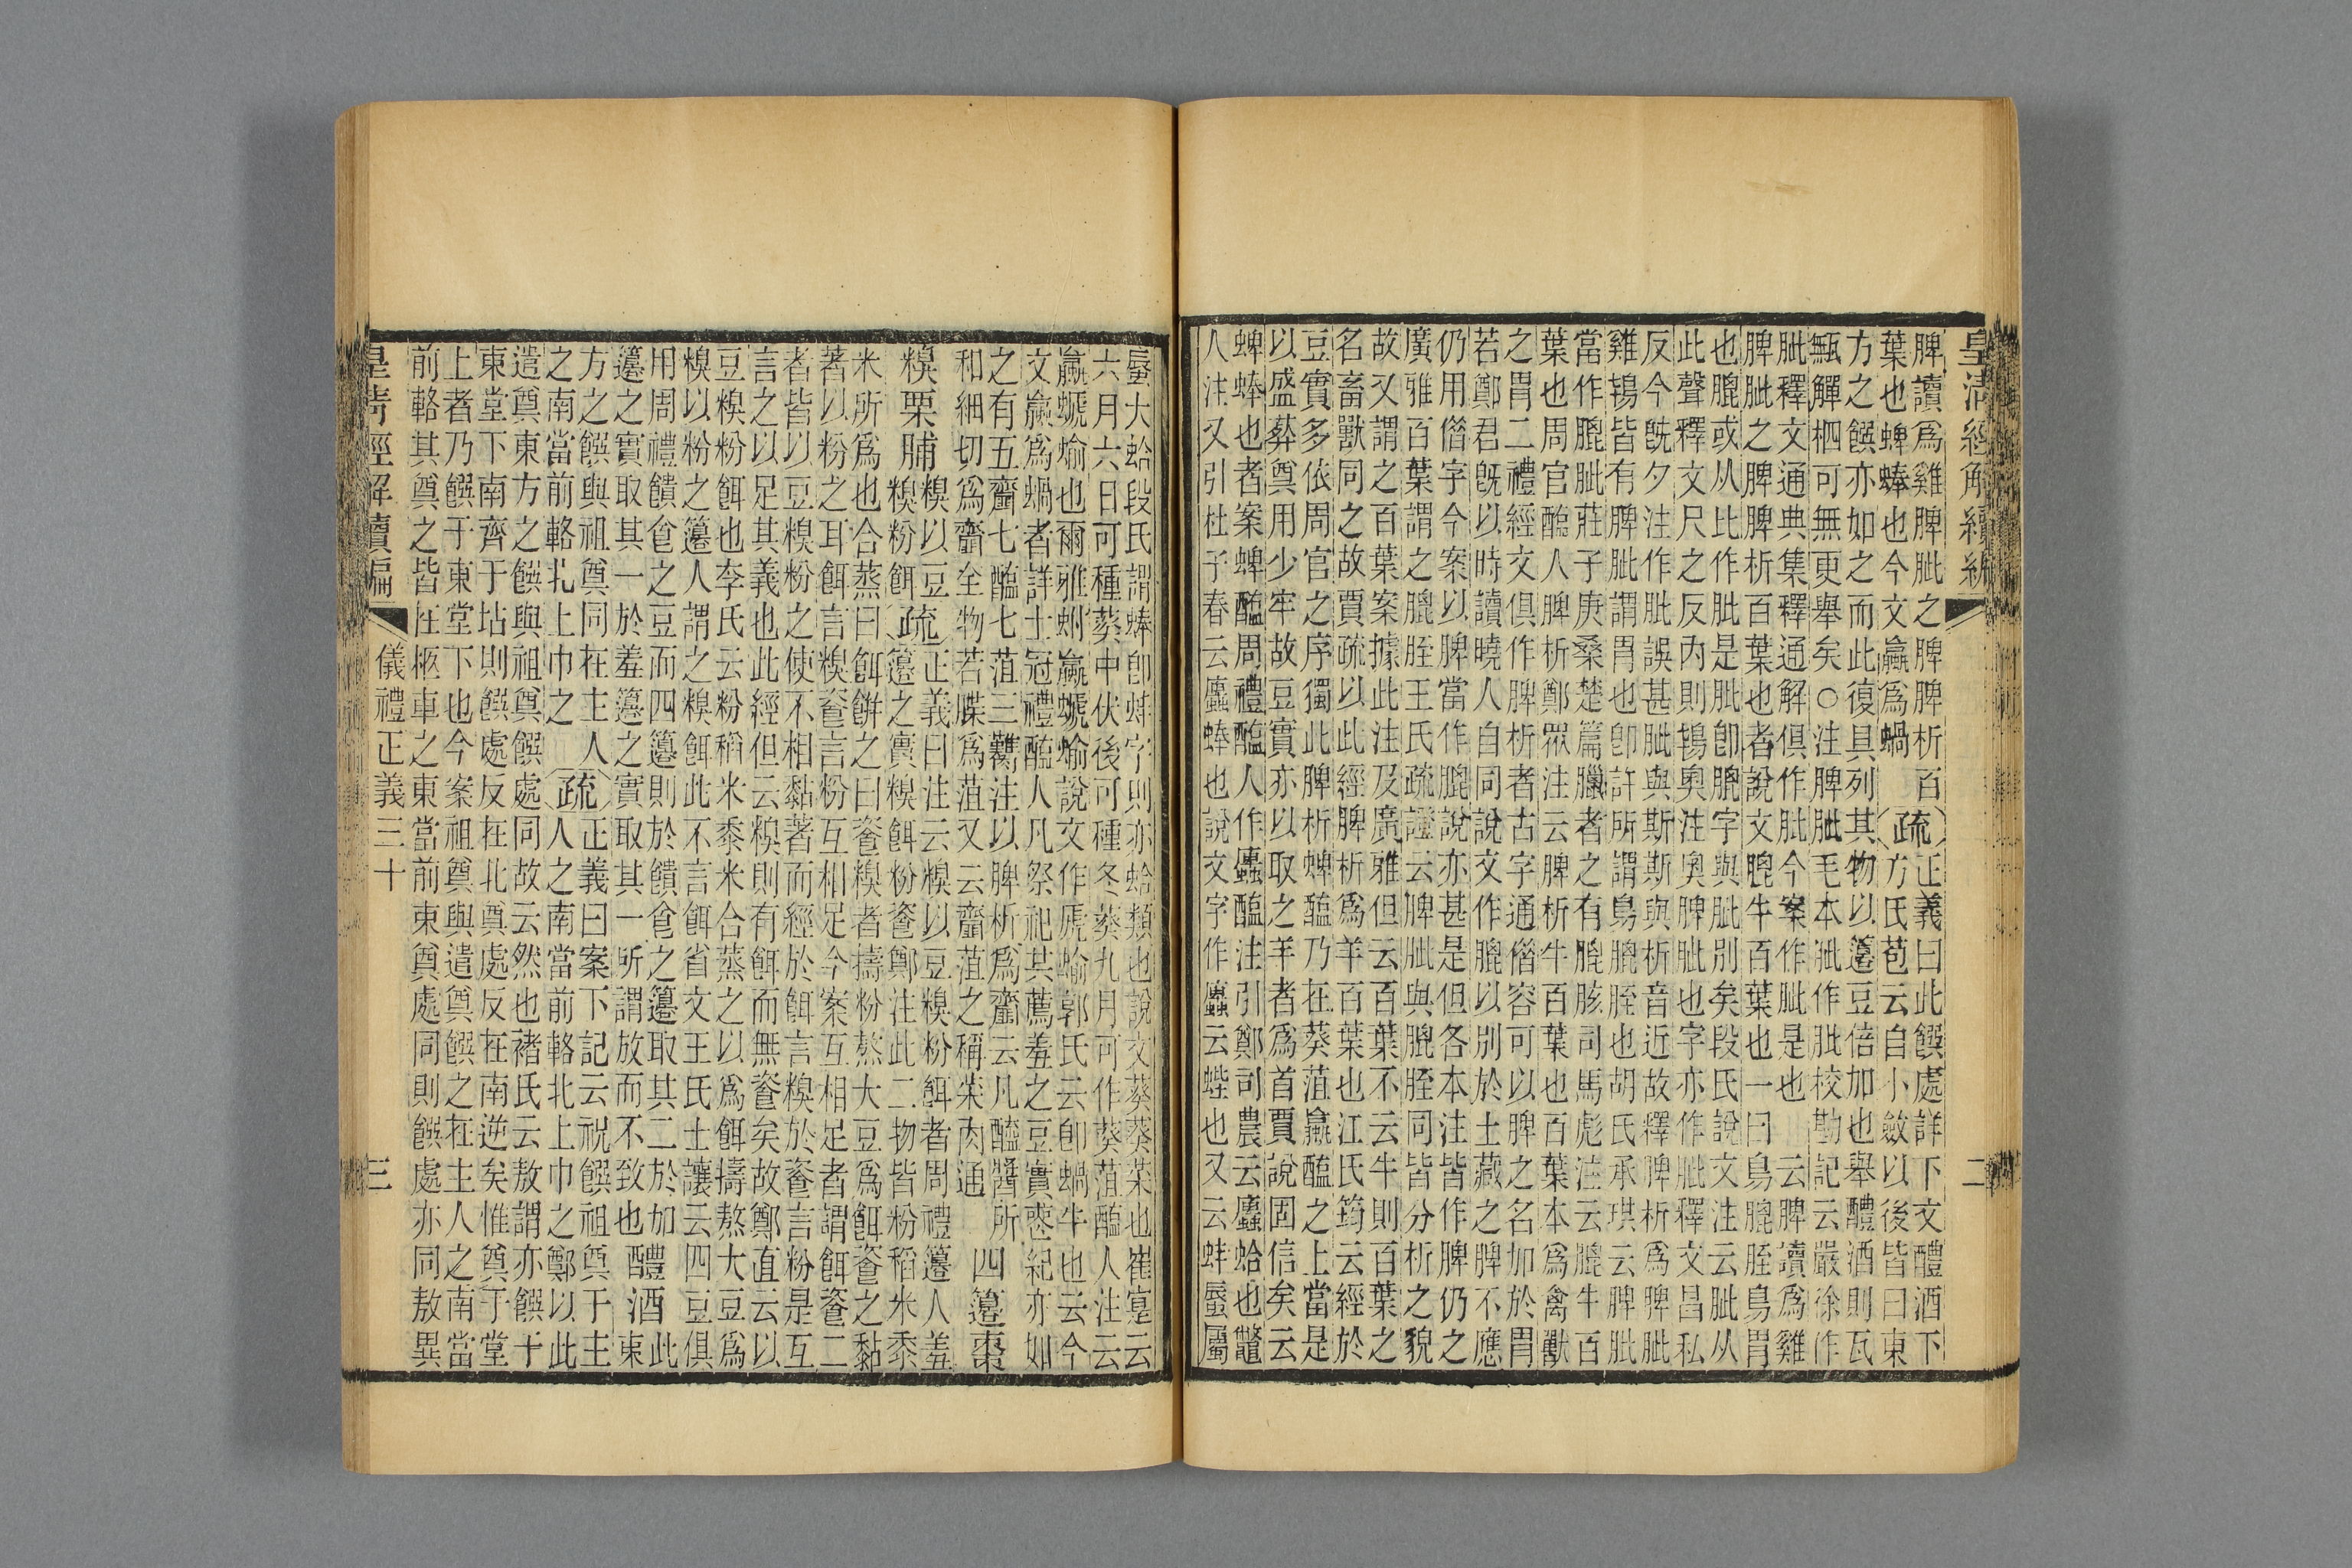 皇清經解續編
二
脾讀爲雞脾肶之脾脾析百
葉也蜱蜯也今文蠃爲蝸
疏
正義曰此饌處詳下文醴酒下
方氏苞云自小斂以後皆曰東
方之饌亦如之而此復具列其物以籩豆倍加也舉醴酒則瓦
甒觶柶可無更舉矣○注脾肶毛本肶作肶校勘記云嚴徐作
肶釋文通典集釋通解俱作肶今案作肶是也 云脾讀爲雞
脾肶之脾脾析百葉也者說文膍牛百葉也一曰鳥膍胵鳥胃
也膍或从比作肶是肶卽膍字與肶別矣段氏說文注云肶从
此聲釋文尺之反內則鴇奧注奧脾肶也字亦作肶釋文昌私
反今旣夕注作肶誤甚肶與斯斯與析音近故釋脾析爲脾肶
雞鴇皆有脾肶謂胃也卽許所謂鳥膍胵也胡氏承珙云脾肶
當作膍肶莊子庚桑楚篇臘者之有膍胲司馬彪注云膍牛百
葉也周官醢人脾析鄭眾注云脾析牛百葉也百葉本爲禽獸
之胃二禮經文俱作脾析者古字通僭容可以脾之名加於胃
若鄭君旣以時讀曉人自同說文作膍以別於土藏之脾不應
仍用僭字今案以脾當作膍說亦甚是但各本注皆作脾仍之
廣雅百葉謂之膍胵王氏疏證云脾肶與膍胵同皆分析之貌
故又謂之百葉案據此注及廣雅但云百葉不云牛則百葉之
名畜獸同之故賈疏以此經脾析爲羊百葉也江氏筠云經於
豆實多依周官之序獨此脾析蜱醢乃在葵菹蠃醢之上當是
以盛葬奠用少牢故豆實亦以取之羊者爲首賈說固信矣云
蜱蜯也者案蜱醢周禮醢人作蠯醢注引鄭司農云蠯蛤也鼈
人注又引杜子春云蠯蜯也說文字作蠯云蜌也又云蚌蜃屬
蜃大蛤段氏謂蜯卽蚌字則亦蛤類也說文葵葵菜也崔寔云
六月六日可種葵中伏後可種冬葵九月可作葵菹醢人注云
蠃螔蝓也爾雅蚹蠃螔蝓說文作虒蝓郭氏云卽蝸牛也云今
文蠃爲蝸者詳士冠禮醢人凡祭祀共薦羞之豆實喪紀亦如
之有五齏七醢七菹三臡注以脾析爲齏云凡醯醬所
和細切爲齏全物若䐑爲菹又云齏菹之稱菜肉通
四籩棗
糗栗脯
糗以豆
糗粉餌
疏
正義曰注云糗以豆糗粉餌者周禮籩人羞
籩之實糗餌粉餈鄭注此二物皆粉稻米黍
米所爲也合蒸曰餌餅之曰餈糗者擣粉熬大豆爲餌餈之黏
著以粉之耳餌言糗餈言粉互相足今案互相足者謂餌餈二
者皆以豆糗粉之使不相黏著而經於餌言糗於餈言粉是互
言之以足其義也此經但云糗則有餌而無餈矣故鄭直云以
豆糗粉餌也李氏云粉稻米黍米合蒸之以爲餌擣熬大豆爲
糗以粉之籩人謂之糗餌此不言餌省文王氏士讓云四豆俱
用周禮饋食之豆而四籩則於饋食之籩取其二於加
籩之實取其一於羞籩之實取其一所謂放而不致也
醴酒
此
東
方之饌與祖奠同在主人
之南當前輅北上巾之
疏
正義曰案下記云祝饌祖奠于主
人之南當前輅北上巾之鄭以此
遣奠東方之饌與祖奠饌處同故云然也褚氏云敖謂亦饌于
東堂下南齊于坫則饌處反在北奠處反在南逆矣惟奠于堂
上者乃饌于東堂下也今案祖奠與遣奠饌之在主人之南當
前輅其奠之皆在柩車之東當前東奠處同則饌處亦同敖異
皇清經解續編
儀禮正義三十
三